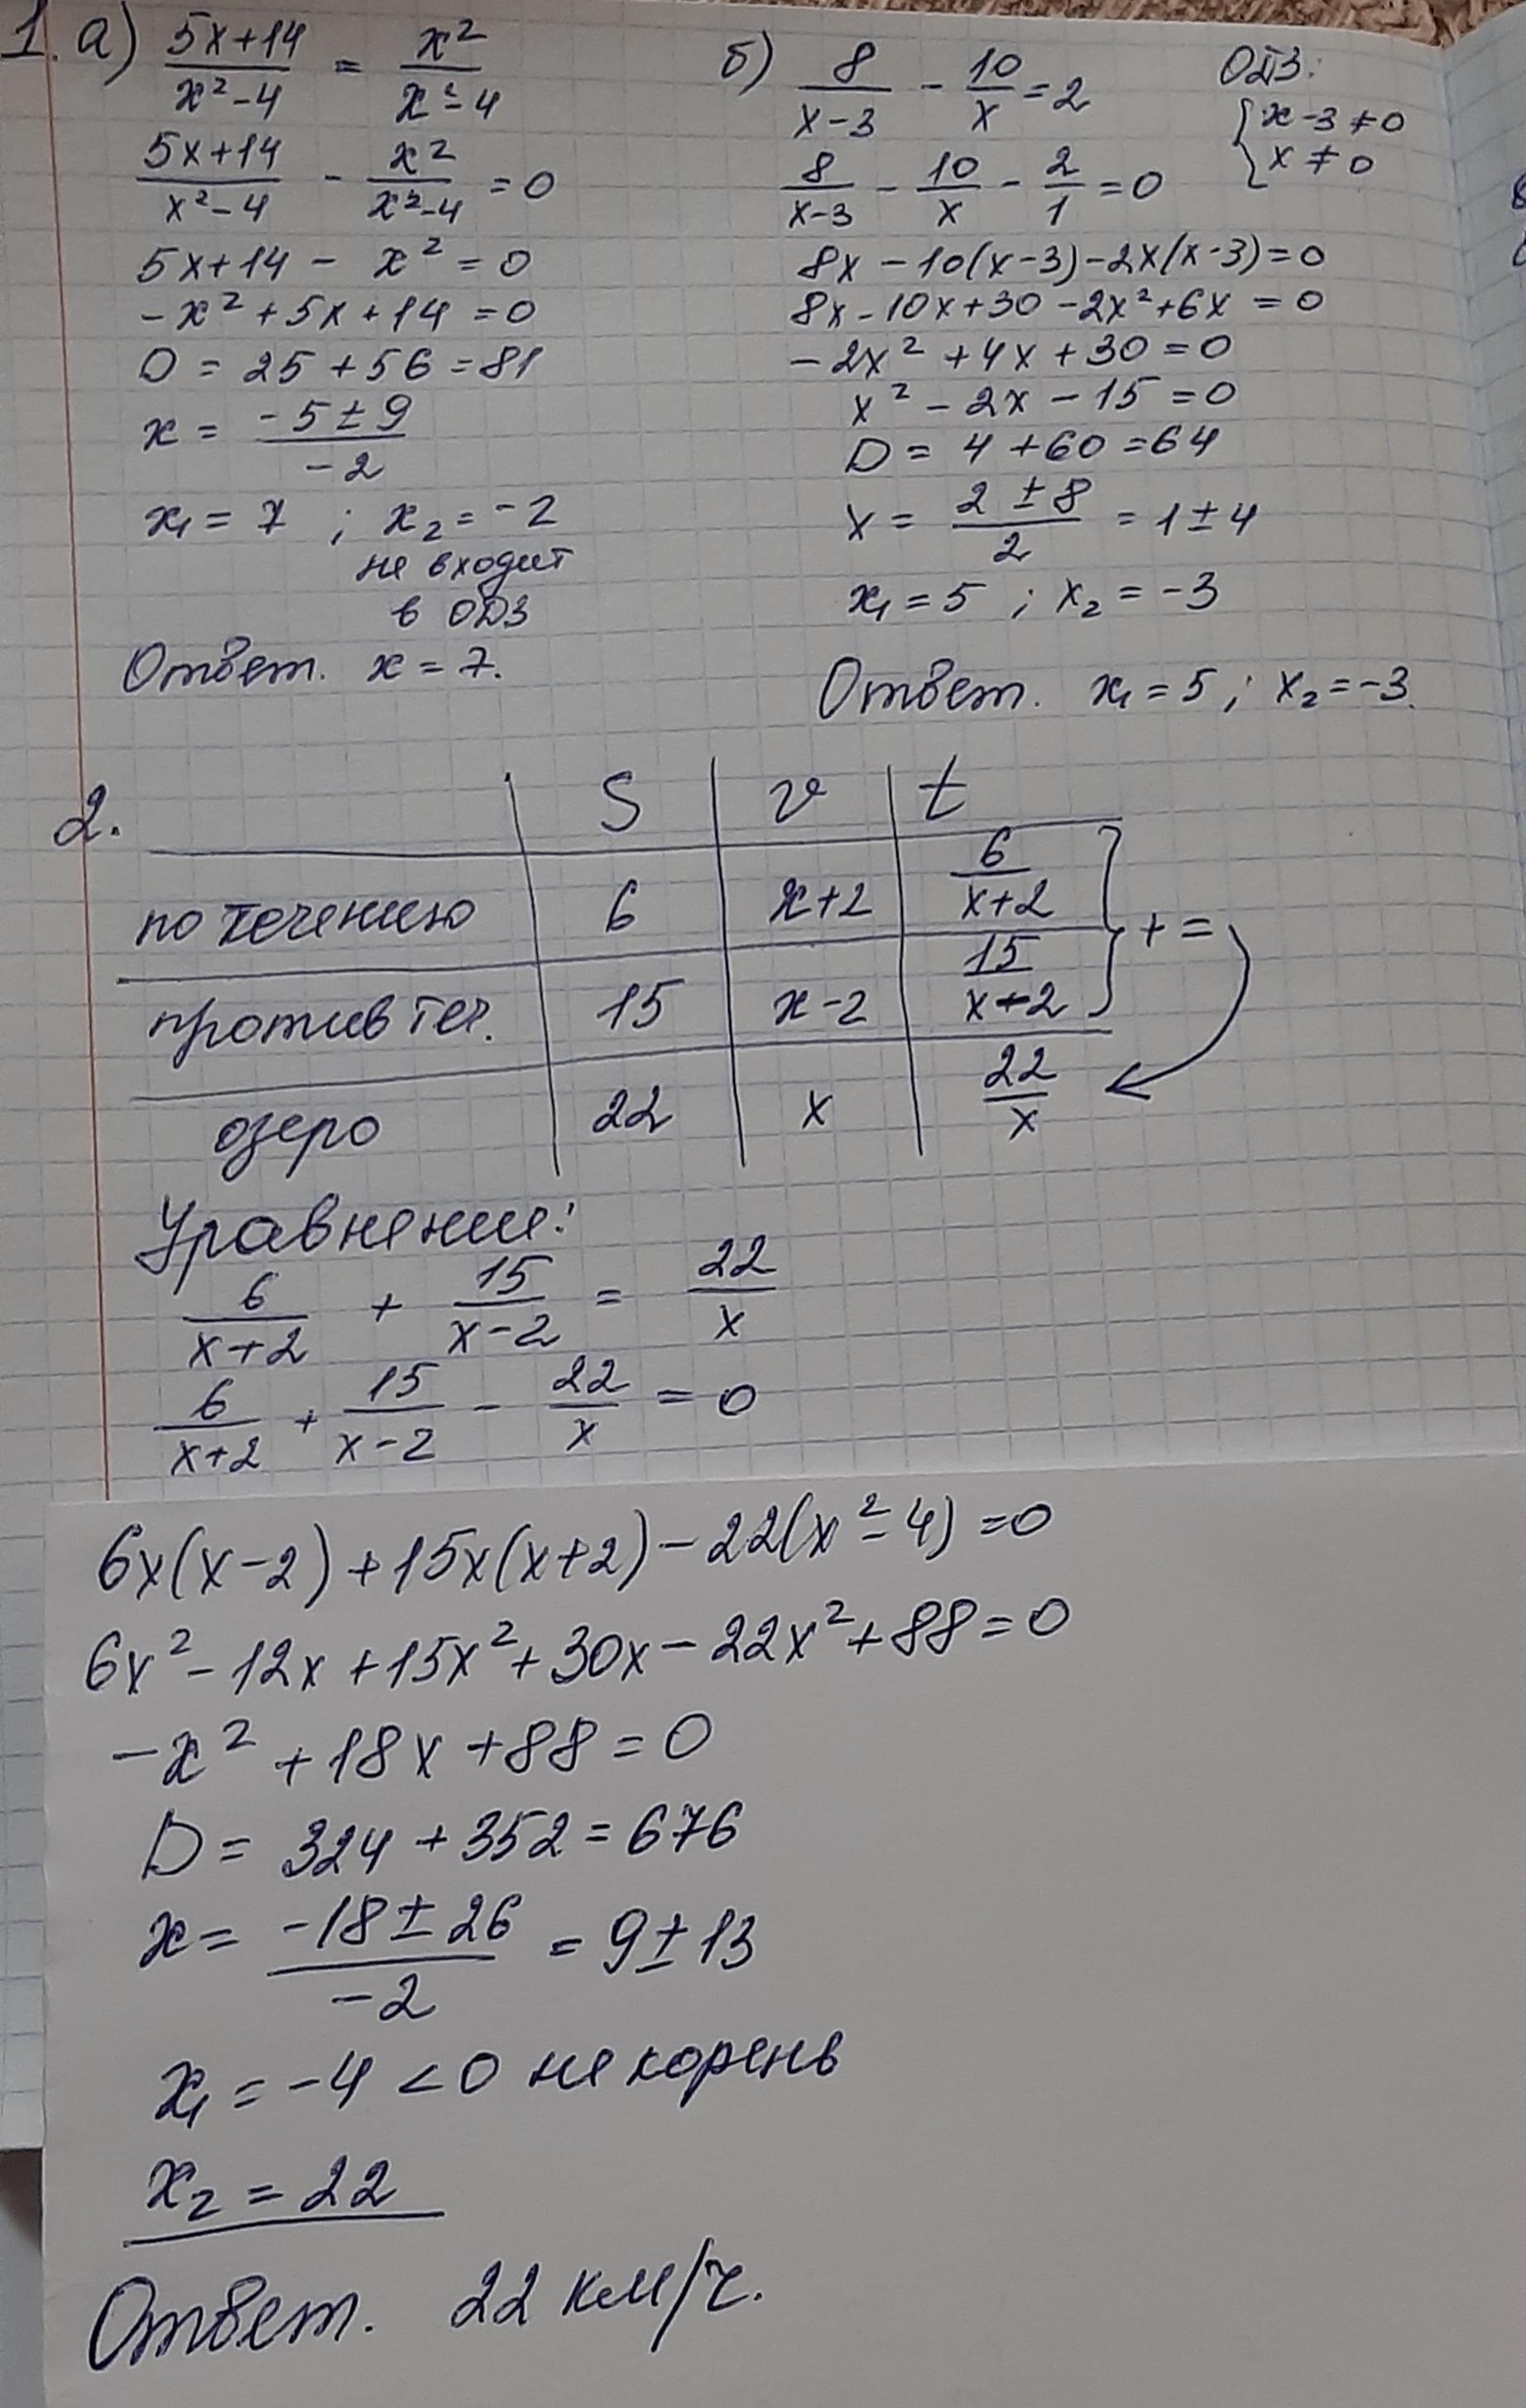 1. а) (5x+14)/(x²-4) = x²/(x²-4)
(5x+14)/(x²-4) - x²/(x²-4) = 0
5x+14 - x² = 0
-x² + 5x + 14 = 0
D = 25 + 56 = 81
x = (-5 ± 9)/(-2)
x₁ = 7 ; x₂ = -2
не входит
в ОДЗ
Ответ. x = 7.
б) 8/(x-3) - 10/x = 2
ОДЗ:
{ x-3 ≠ 0
x ≠ 0
8/(x-3) - 10/x - 2/1 = 0
8x - 10(x-3) - 2x(x-3) = 0
8x - 10x + 30 - 2x² + 6x = 0
-2x² + 4x + 30 = 0
x² - 2x - 15 = 0
D = 4 + 60 = 64
x = (2 ± 8)/2 = 1 ± 4
x₁ = 5 ; x₂ = -3
Ответ. x₁ = 5 ; x₂ = -3.
2.
S v t
по течению 6 x+2 6/(x+2)
+ =
против теч. 15 x-2 15/(x-2)
озеро 22 x 22/x
Уравнение:
6/(x+2) + 15/(x-2) = 22/x
6/(x+2) + 15/(x-2) - 22/x = 0
6x(x-2) + 15x(x+2) - 22(x²-4) = 0
6x² - 12x + 15x² + 30x - 22x² + 88 = 0
-x² + 18x + 88 = 0
D = 324 + 352 = 676
x = (-18 ± 26)/(-2) = 9 ± 13
x₁ = -4 < 0 не корень
x₂ = 22
Ответ. 22 км/ч.